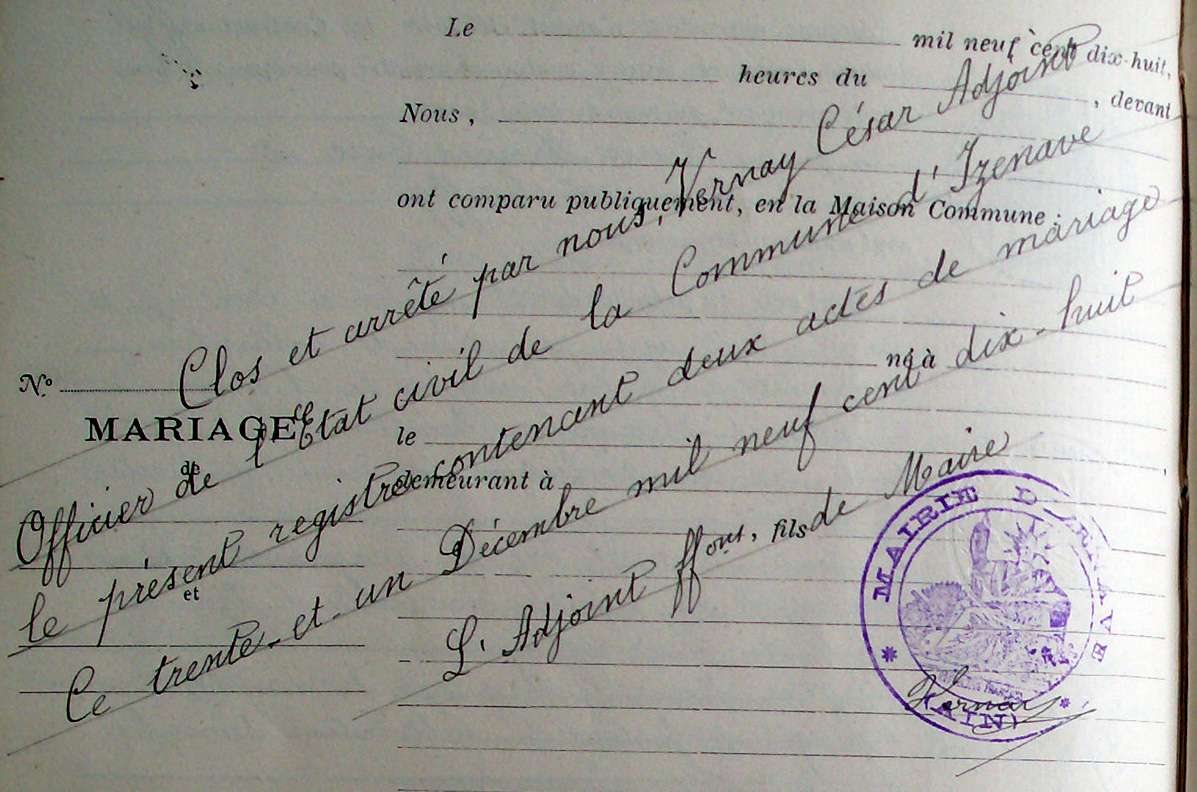 Le mil neuf cent dix-huit,
heures du , devant
Nous ,
ont comparu publiquement, en la Maison Commune :
Clos et arrêté par nous, Vernay César Adjoint
Officier de l'Etat civil de la Commune d'Izenave
le présent registre contenant deux actes de mariage
Ce trente-et-un Décembre mil neuf cent dix-huit
L'Adjoint ff ons de Maire
No
MARIAGE
de
et
né à
le
demeurant à
, fils
MAIRIE D'IZENAVE
* (AIN) *
Vernay